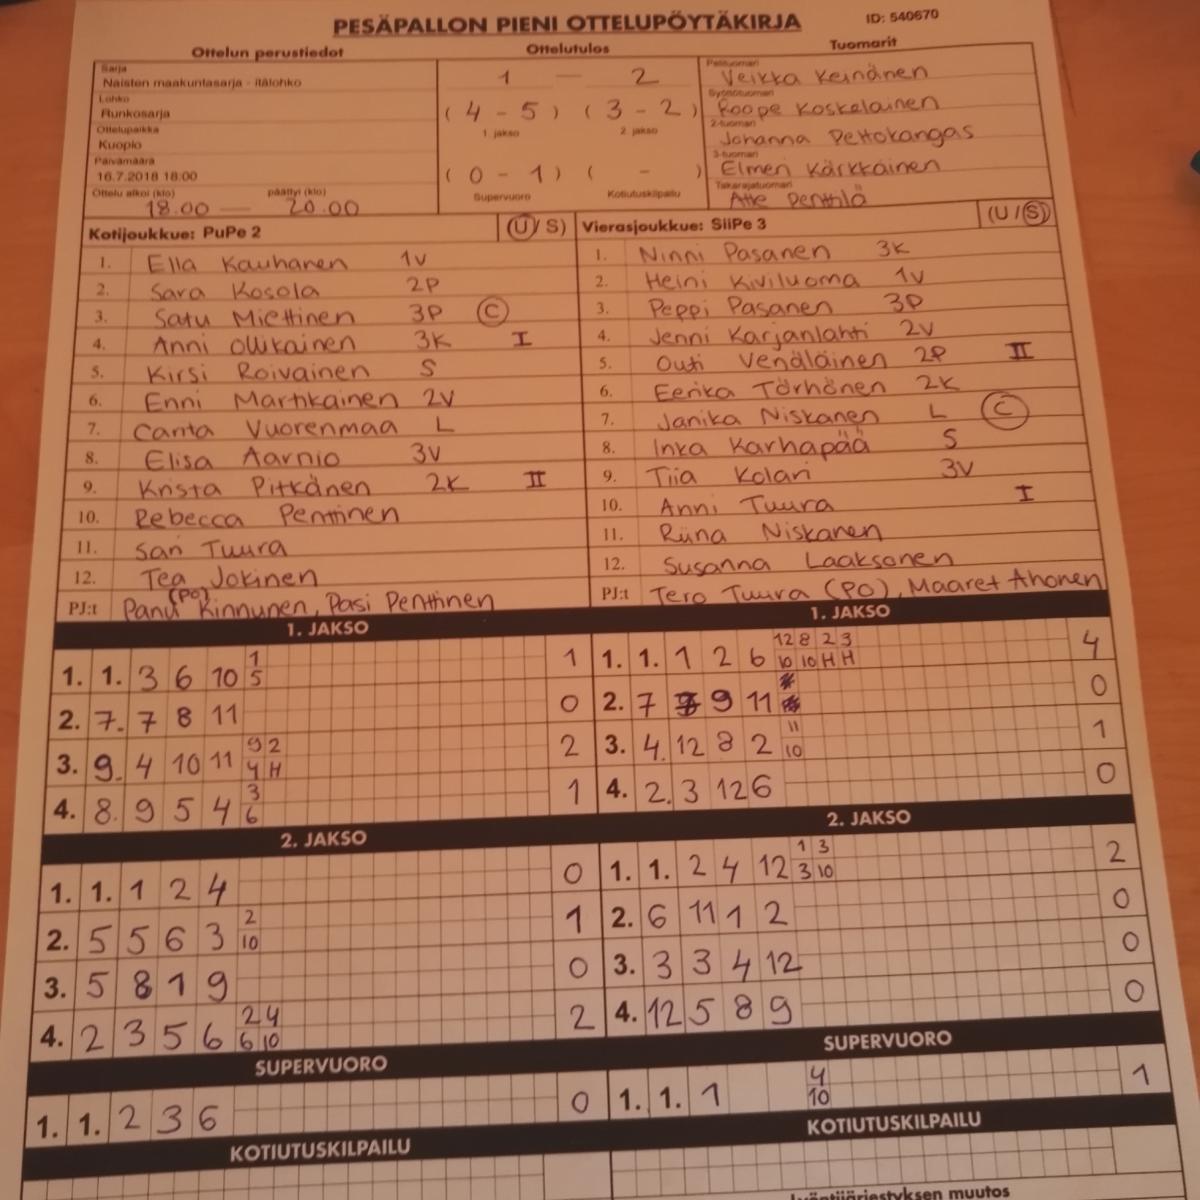 PESÄPALLON PIENI OTTELUPÖYTÄKIRJA ID: 540670
Ottelun perustiedot Ottelutulos Tuomarit
Sarja
Naisten maakuntasarja - itälohko
Lohko
Runkosarja
Ottelupaikka
Kuopio
Päivämäärä
16.7.2018 18:00
Ottelu alkoi (klo) päättyi (klo)
18.00 — 20.00
1 — 2
( 4 - 5 ) ( 3 - 2 )
1. jakso 2. jakso
( 0 - 1 ) ( - )
Supervuoro Kotiutuskilpailu
Pelituomari
Veikka Keinänen
Syöttötuomari
Roope Koskelainen
2-tuomari
Johanna Peltokangas
3-tuomari
Elmeri Kärkkäinen
Takarajatuomari
Atte Penttilä
Kotijoukkue: PuPe 2 (U/S)
1. Ella Kauhanen 1V
2. Sara Kosola 2P
3. Satu Miettinen 3P C
4. Anni Ollikainen 3K I
5. Kirsi Roivainen S
6. Enni Martikainen 2V
7. Carita Vuorenmaa L
8. Elisa Aarnio 3V
9. Krista Pitkänen 2K II
10. Rebecca Penttinen
11. Sari Tuura
12. Tea Jokinen
PJ:t Panu (PO) Kinnunen, Pasi Penttinen
Vierasjoukkue: SiiPe 3 (U/S)
1. Ninni Pasanen 3K
2. Heini Kiviluoma 1V
3. Peppi Pasanen 3P
4. Jenni Karjanlahti 2V
5. Outi Venäläinen 2P II
6. Eerika Törhönen 2K
7. Janika Niskanen L C
8. Inka Karhapää S
9. Tiia Kolari 3V
10. Anni Tuura I
11. Riina Niskanen
12. Susanna Laaksonen
PJ:t Tero Tuura (PO), Maaret Ahonen
1. JAKSO 1. JAKSO
1
1. 1. 3 6 10 5 1
2. 7. 7 8 11 0
9 2
3. 9. 4 10 11 4 H 2
3
4. 8. 9 5 4 6 1
12 8 2 3
1. 1. 1 2 6 10 10 H H 4
2. 7 9 11 0
11
3. 4. 12 8 2 10 1
4. 2. 3 12 6 0
2. JAKSO 2. JAKSO
1. 1. 1 2 4 0
2
2. 5 5 6 3 10 1
3. 5 8 1 9 0
2 4
4. 2 3 5 6 6 10 2
1 3
1. 1. 2 4 12 3 10 2
2. 6 11 1 2 0
3. 3 3 4 12 0
4. 12 5 8 9 0
SUPERVUORO SUPERVUORO
1. 1. 2 3 6 0
4
1. 1. 1 10 1
KOTIUTUSKILPAILU KOTIUTUSKILPAILU
Lyöntijärjestyksen muutos